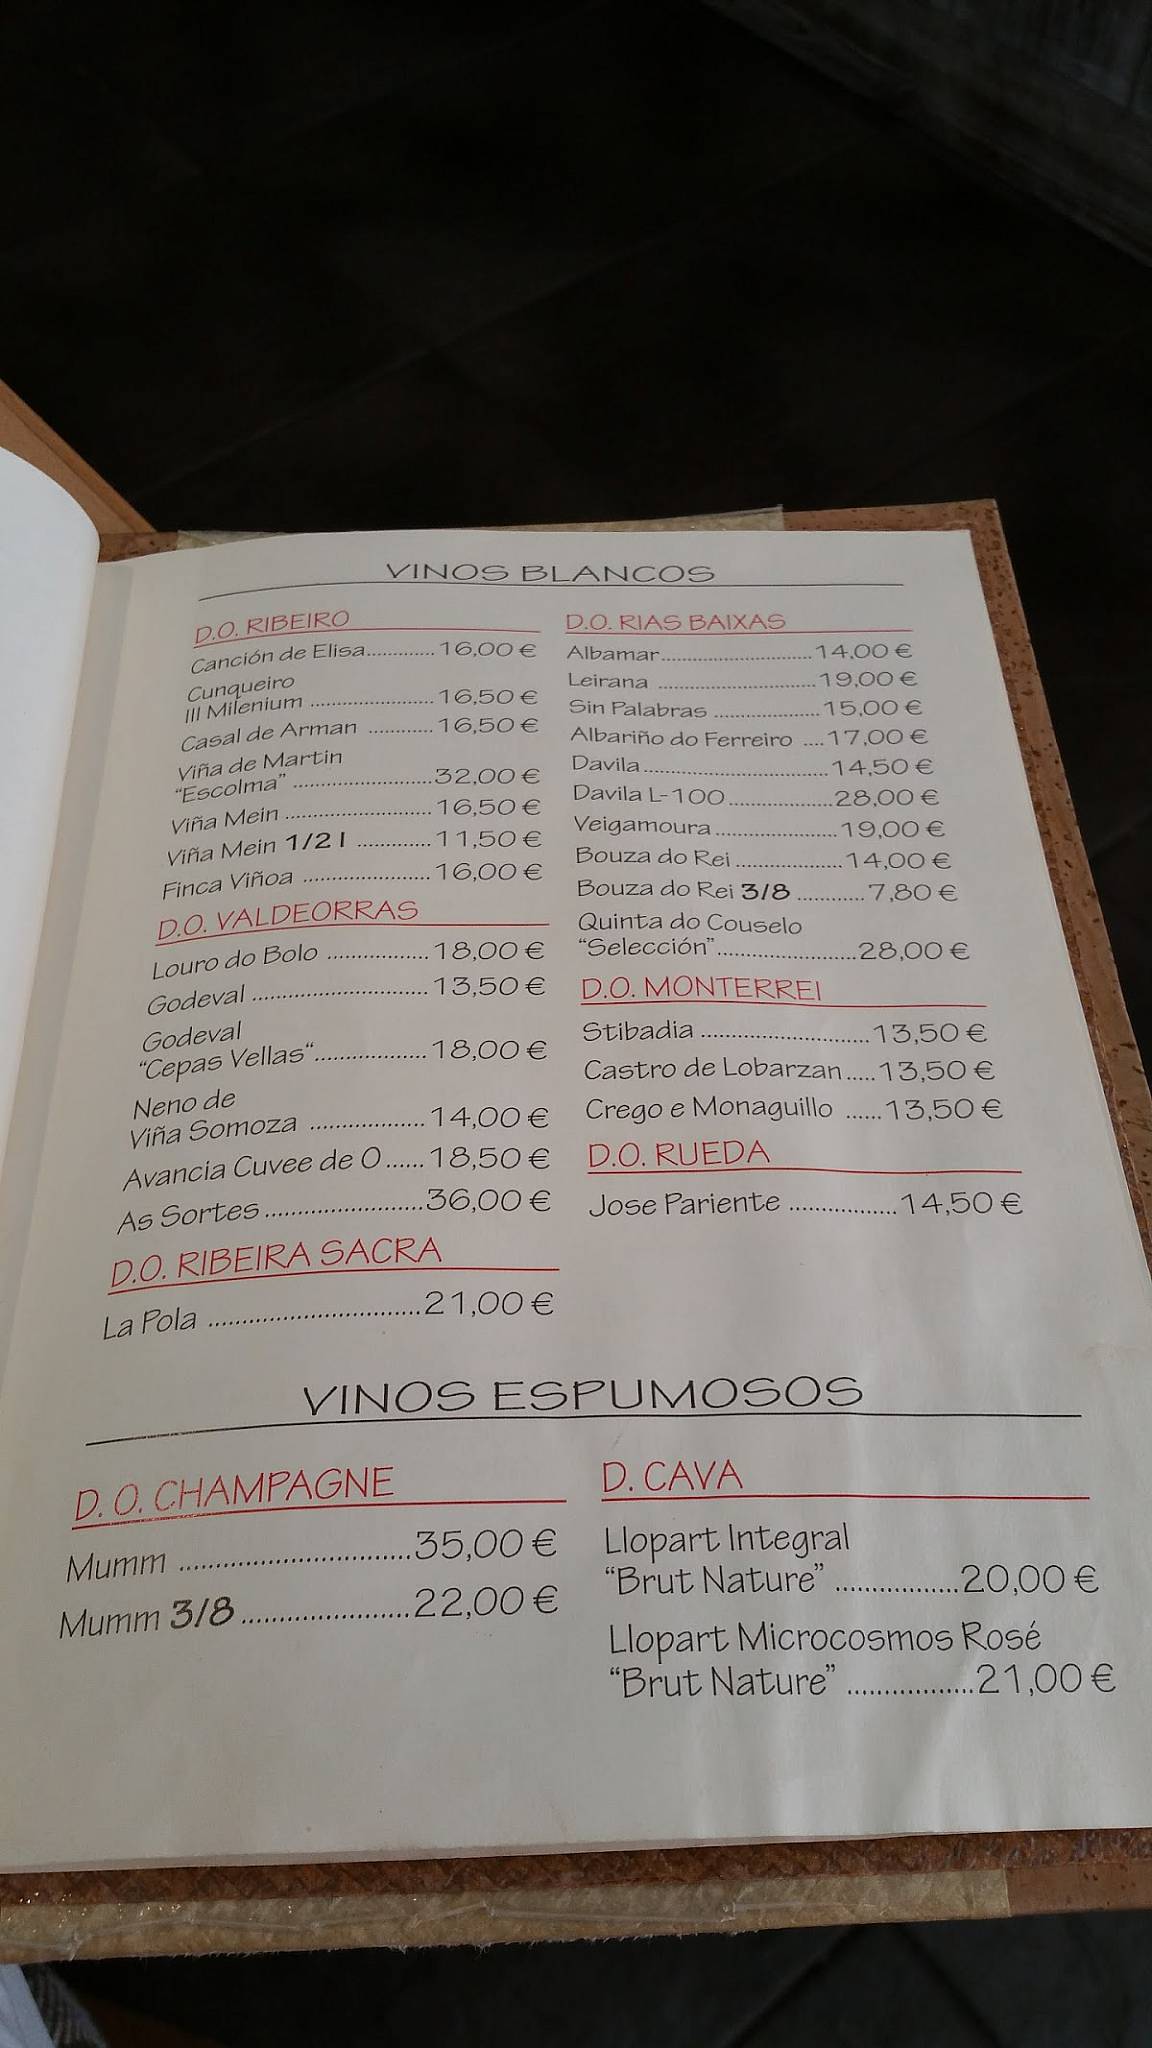 VINOS BLANCOS
D.O. RIBEIRO
Canción de Elisa............16,00 €
Cunqueiro
III Milenium .......................16,50 €
Casal de Arman ............16,50 €
Viña de Martin
"Escolma" .........................32,00 €
Viña Mein ..........................16,50 €
Viña Mein 1/2 l .............11,50 €
Finca Viñoa ......................16,00 €
D.O. VALDEORRAS
Louro do Bolo .................18,00 €
Godeval .............................13,50 €
Godeval
"Cepas Vellas“..................18,00 €
Neno de
Viña Somoza ...................14,00 €
Avancia Cuvee de O......18,50 €
As Sortes........................36,00 €
D.O. RIBEIRA SACRA
La Pola ...............................21,00 €
D.O. RIAS BAIXAS
Albamar............................14,00 €
Leirana .............................19,00 €
Sin Palabras ...................15,00 €
Albariño do Ferreiro ....17,00 €
Davila.................................14,50 €
Davila L-100..................28,00 €
Veigamoura.....................19,00 €
Bouza do Rei..................14,00 €
Bouza do Rei 3/8 ............7,80 €
Quinta do Couselo
“Selección”.......................28,00 €
D.O. MONTERREI
Stibadia ...........................13,50 €
Castro de Lobarzan.....13,50 €
Crego e Monaguillo ......13,50 €
D.O. RUEDA
Jose Pariente .................14,50 €
VINOS ESPUMOSOS
D. O. CHAMPAGNE
Mumm ...............................35,00 €
Mumm 3/8......................22,00 €
D. CAVA
Llopart Integral
“Brut Nature” .................20,00 €
Llopart Microcosmos Rosé
“Brut Nature” .................21,00 €